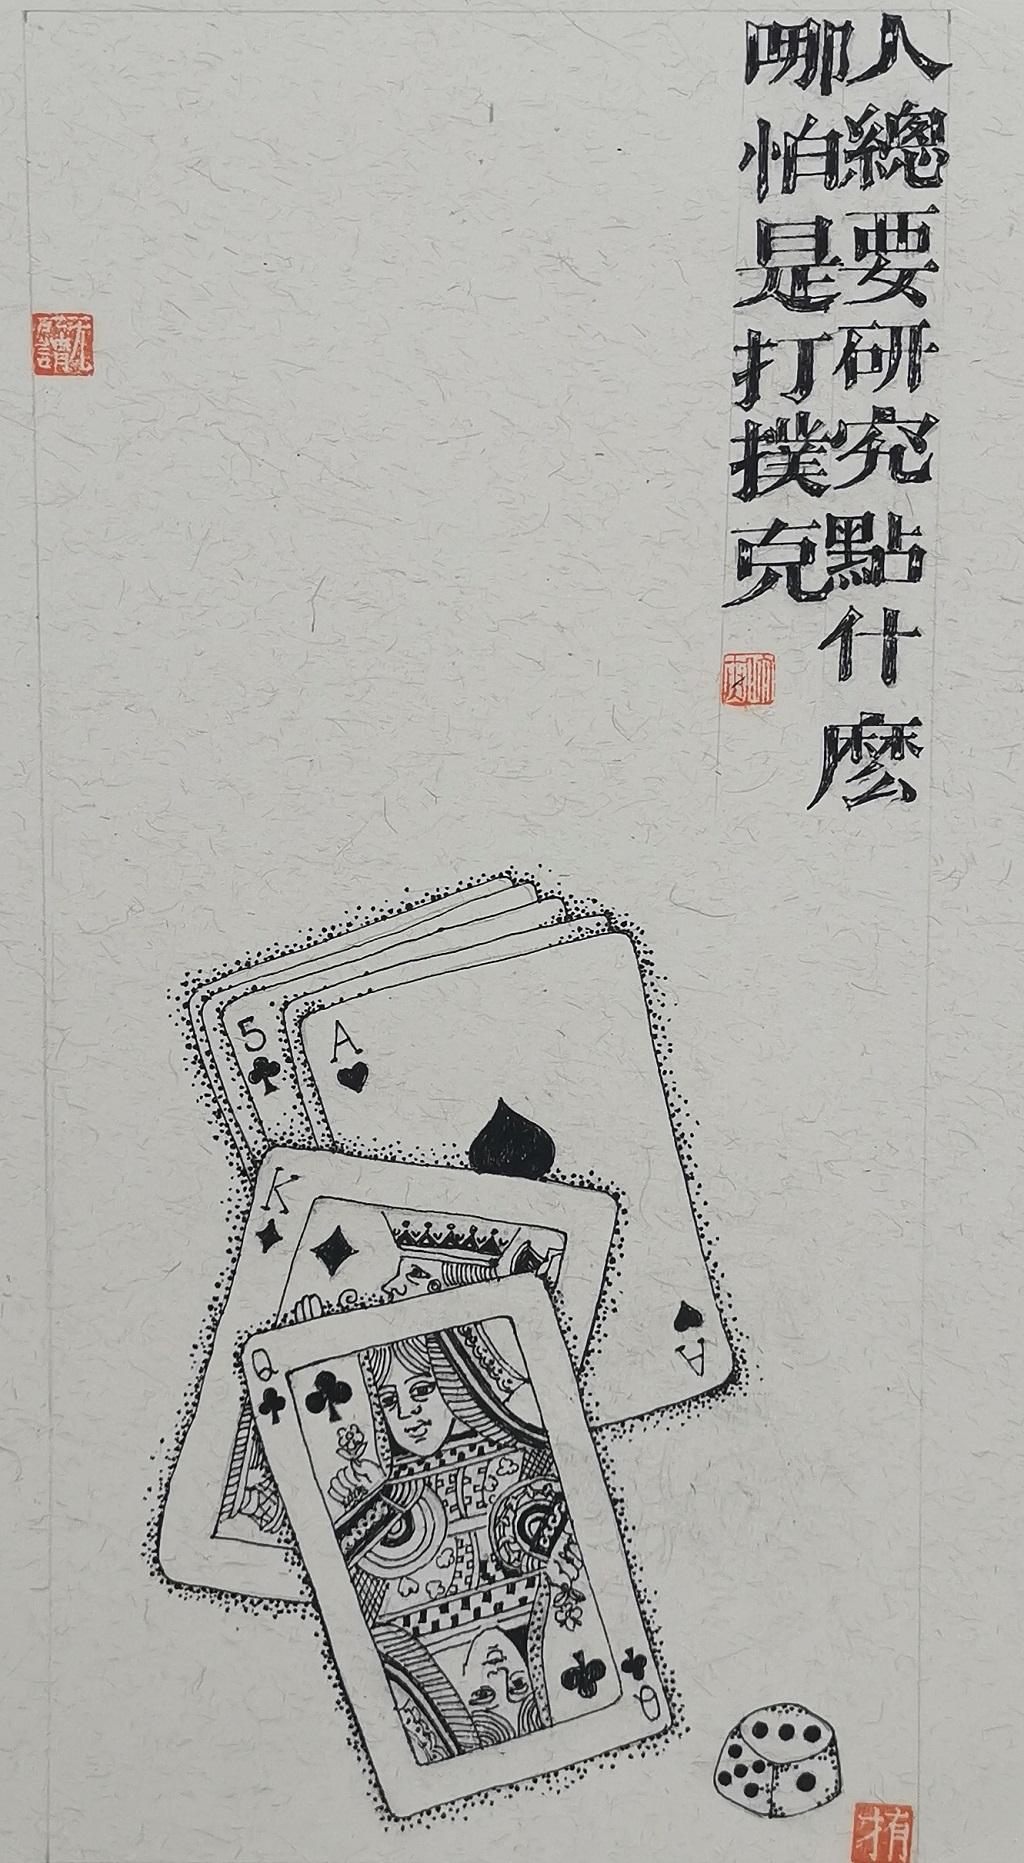 人總要研究點什麼
哪怕是打撲克
5
A
K
Q
A
Q